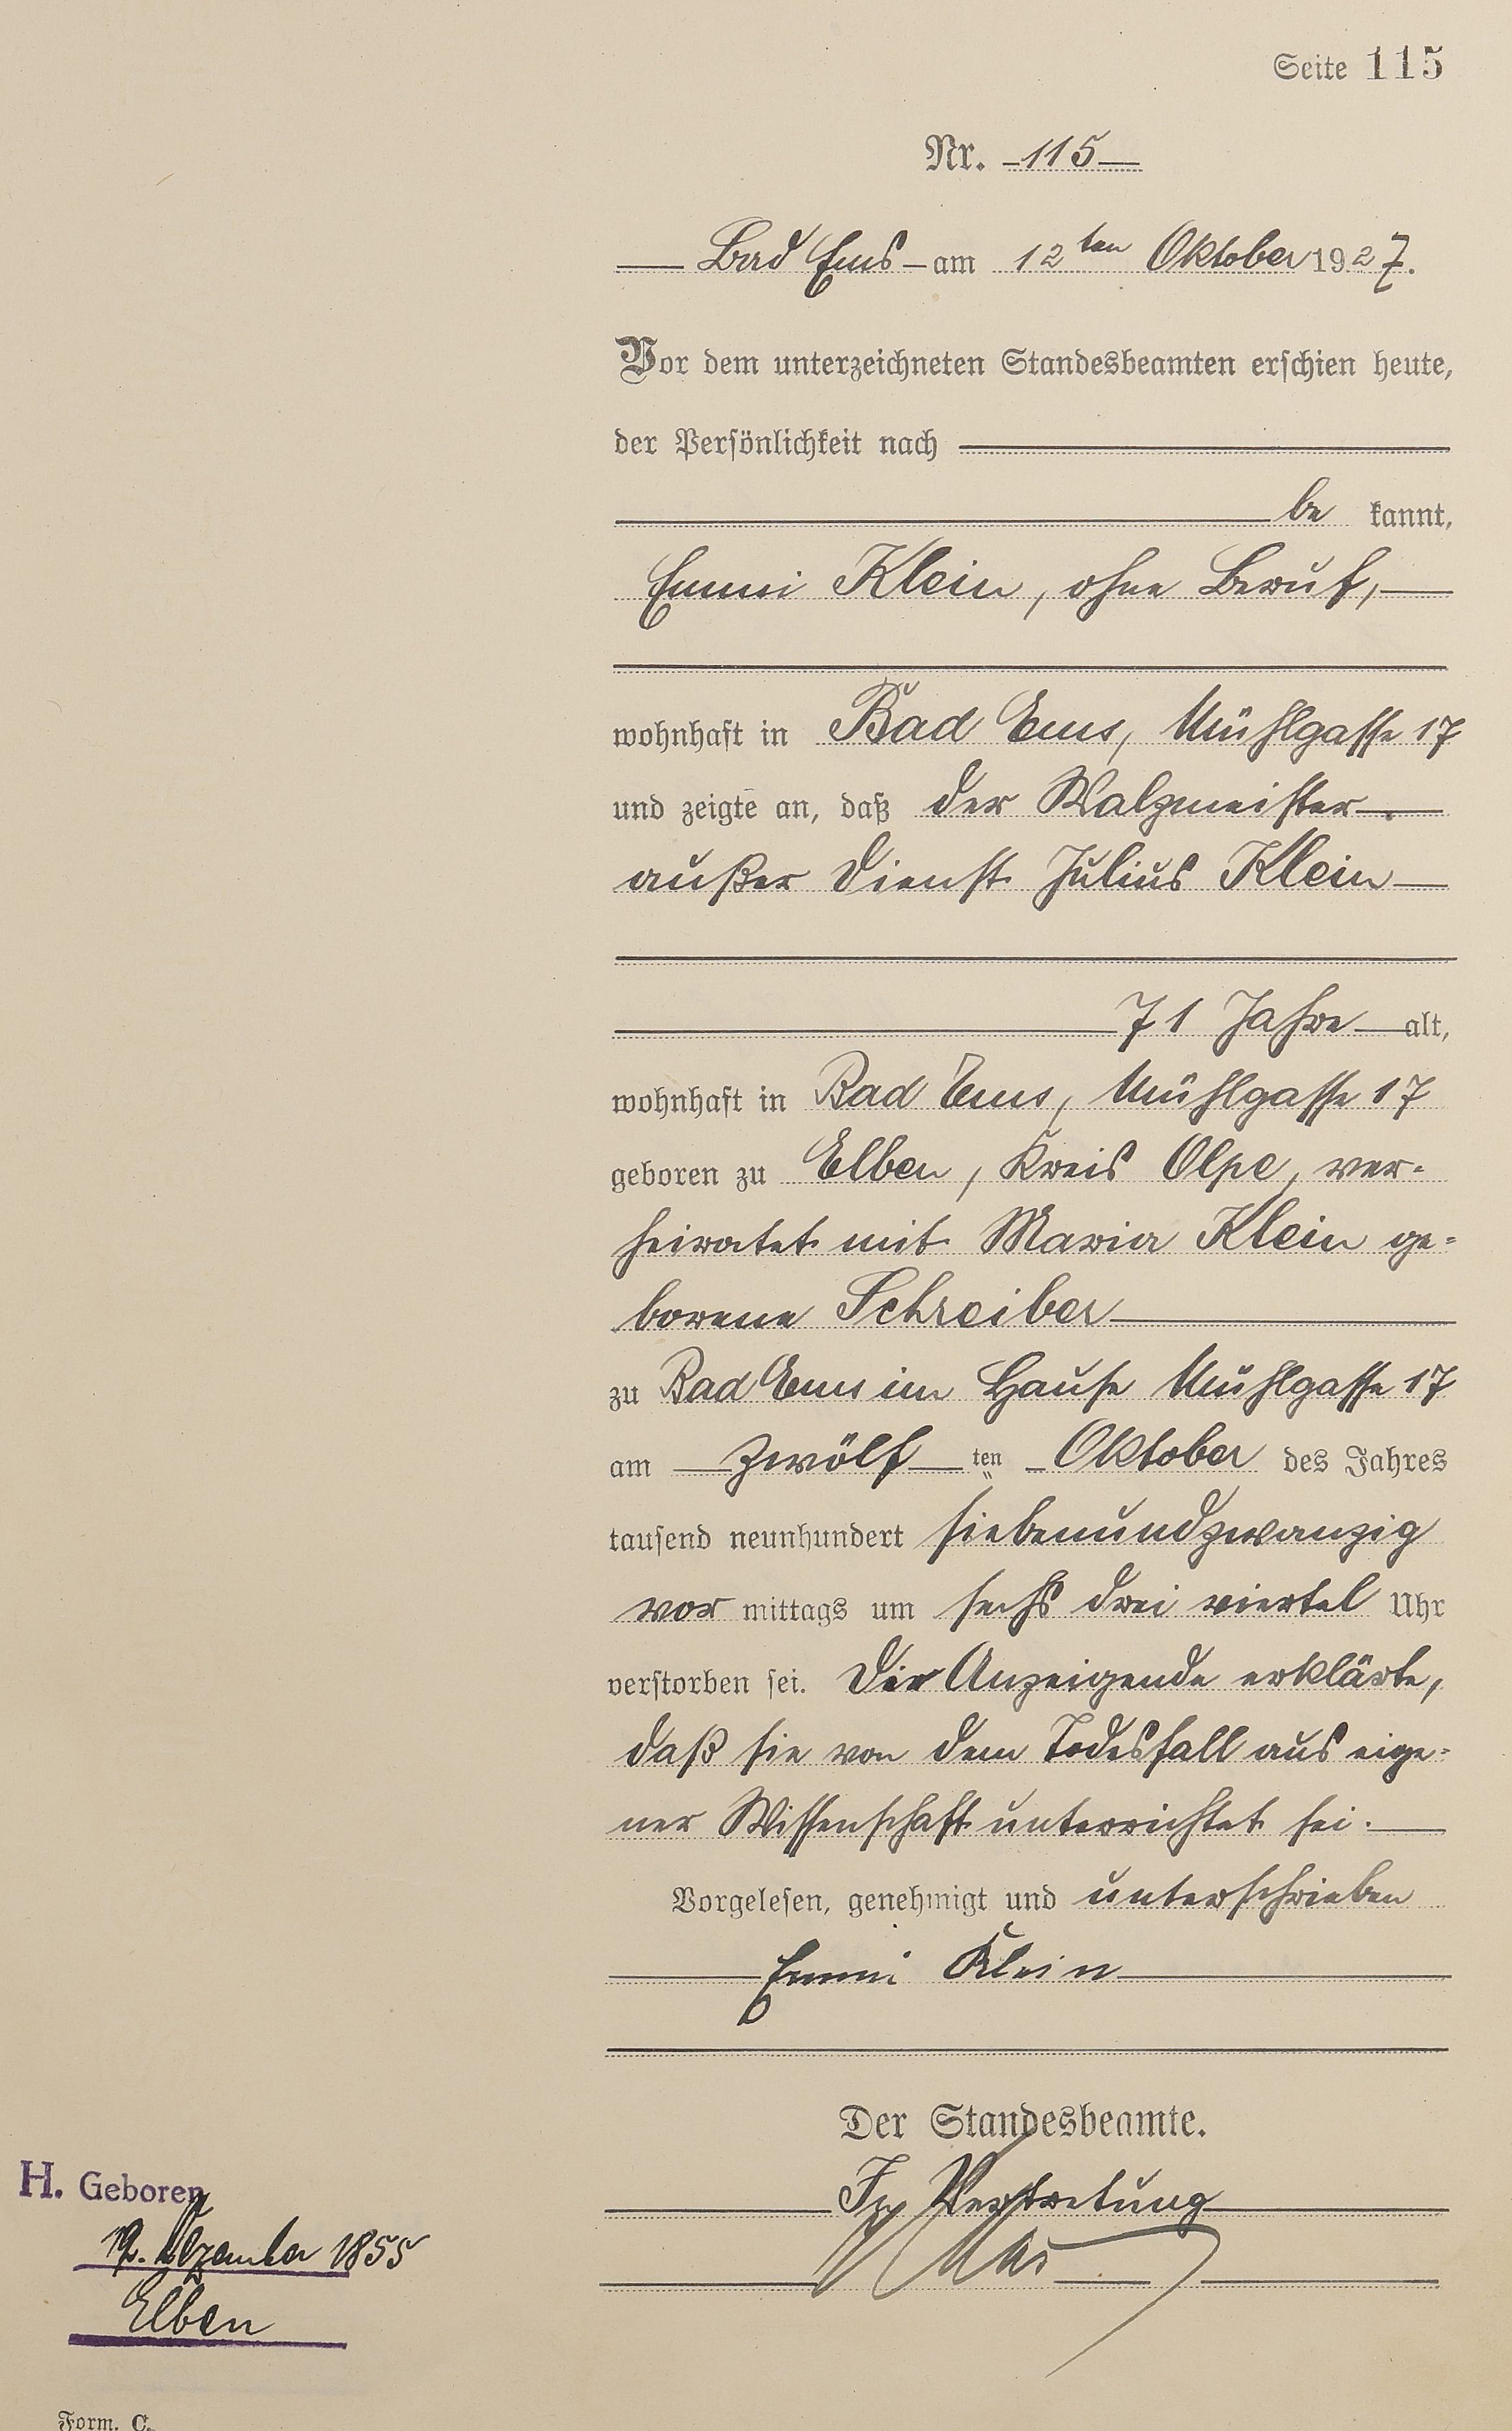 Seite 115
Nr. 115
Bad Ems am 12ten Oktober 1927.
Vor dem unterzeichneten Standesbeamten erschien heute,
der Persönlichkeit nach
be kannt,
Emmi Klein, ohne Beruf,
wohnhaft in Bad Ems, Mühlgasse 17
und zeigte an, daß der Walzmeister
außer Dienst Julius Klein
71 Jahre alt,
wohnhaft in Bad Ems, Mühlgasse 17
geboren zu Elben, Kreis Olpe, ver-
heiratet mit Maria Klein ge-
borene Schreiber
zu Bad Ems im Hause Mühlgasse 17
am zwölf ten Oktober des Jahres
tausend neunhundert siebenundzwanzig
vor mittags um sechs drei viertel Uhr
verstorben sei. Die Anzeigende erklärte,
daß sie von dem Todesfall aus eige-
ner Wissenschaft unterrichtet sei.
Vorgelesen, genehmigt und unterschrieben
Emmi Klein
Der Standesbeamte.
In Vertretung
H. Geboren
Dezember 1855
Elben
Form. C.